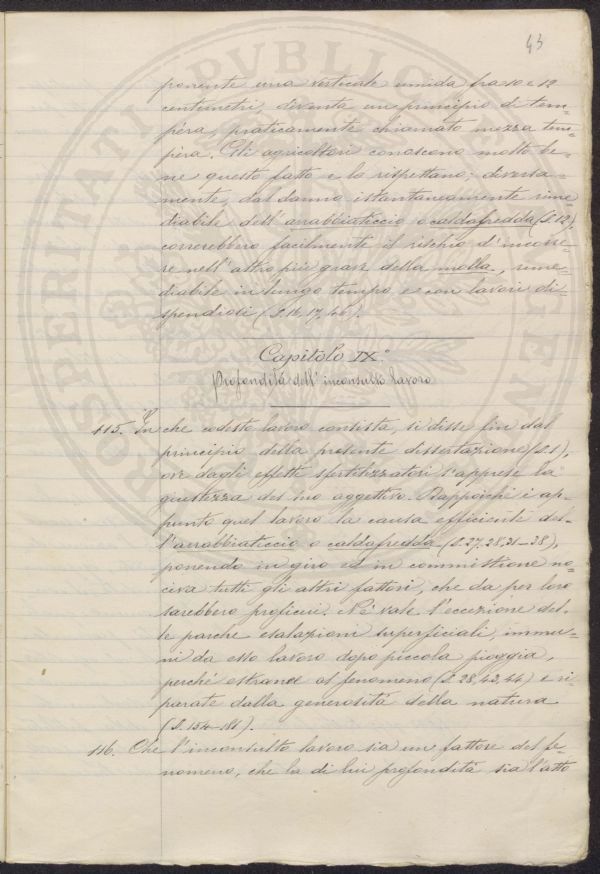 43
ponente una verticale umida fra 10 e 12
centimetri, diventa un principio di tem-
pera, praticamente chiamato mezza tem-
pera. Gli agricoltori conoscono molto be-
ne questo fatto e lo rispettano; diversa-
mente, dal danno istantaneamente rime-
diabile dell'arrabbiaticcio o caldafredda (§.12),
correrebbero facilmente il rischio d'incorre-
re nell'altro più grave della molla, rime-
diabile in lungo tempo e con lavori di-
spendiosi (§.16, 17, 46).
Capitolo IX.°
Profondità dell'inconsulto lavoro
115. In che codesto lavoro consista, si disse fin dal
principio della presente dissertazione (§.1),
ove dagli effetti sfertilizzatori s'apprese la
giustezza del suo aggettivo. Dappoichè è ap-
punto quel lavoro la causa efficiente del-
l'arrabbiaticcio o caldafredda (§.27, 28, 31-38),
ponendo in giro ed in commistione no-
civa tutti gli altri fattori, che da per loro
sarebbero proficui. Nè vale l'eccezione del-
le parche esalazioni superficiali, immu-
ni da esso lavoro dopo piccola pioggia,
perché estranee al fenomeno (§.28, 43, 44) e ri-
parate dalla generosità della natura
(§.154-181).
116. Che l'inconsulto lavoro sia un fattore del fe-
nomeno, che la di lui profondità sia l'atto
PROSPERITATI PVBLICAE